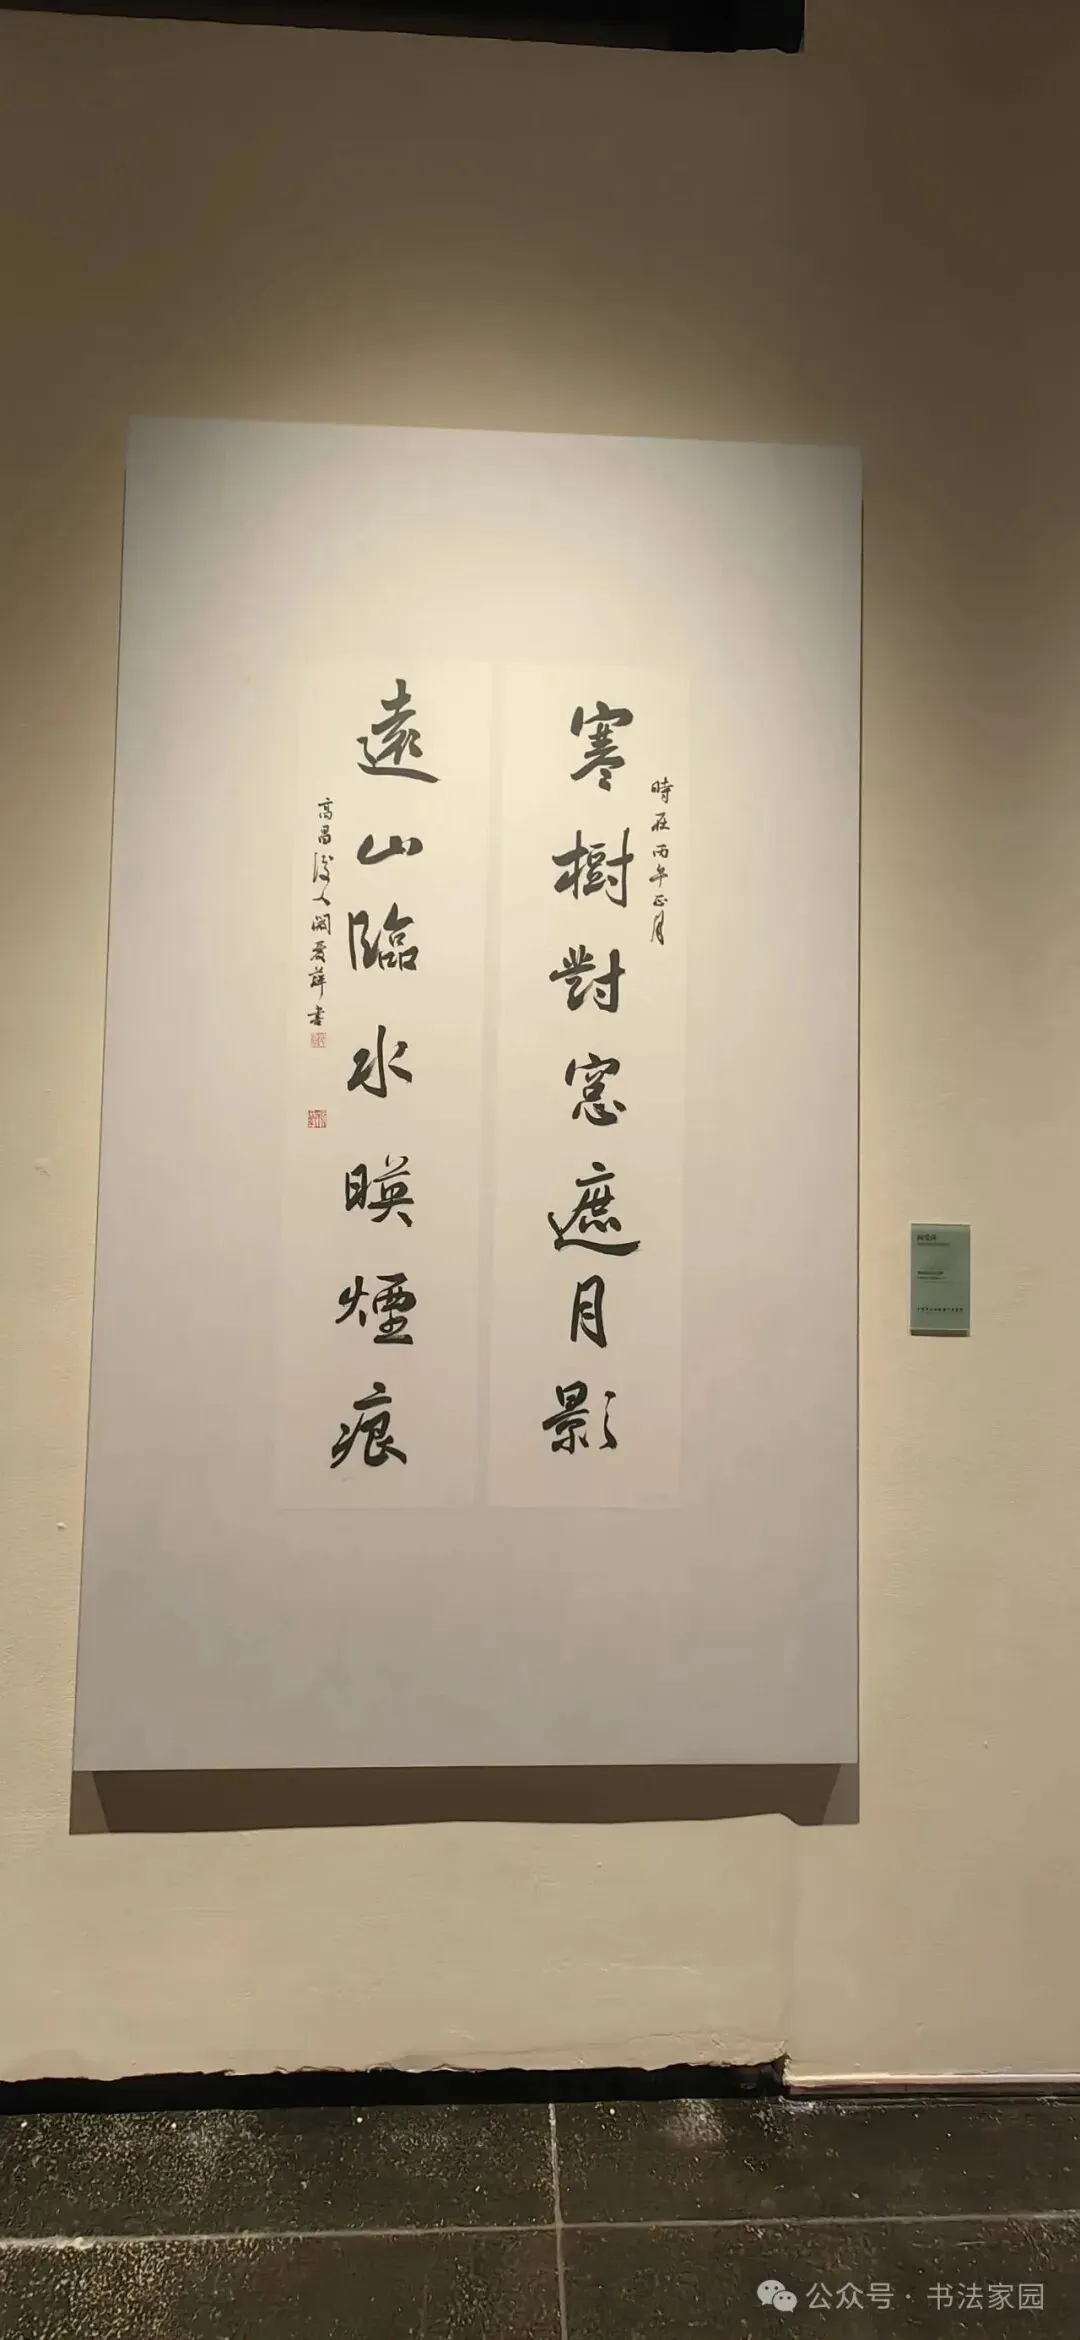 寒樹對窓遮月影
時在丙午正月
遠山臨水暎煙痕
高昌後人闞愛萍書
公众号·书法家园